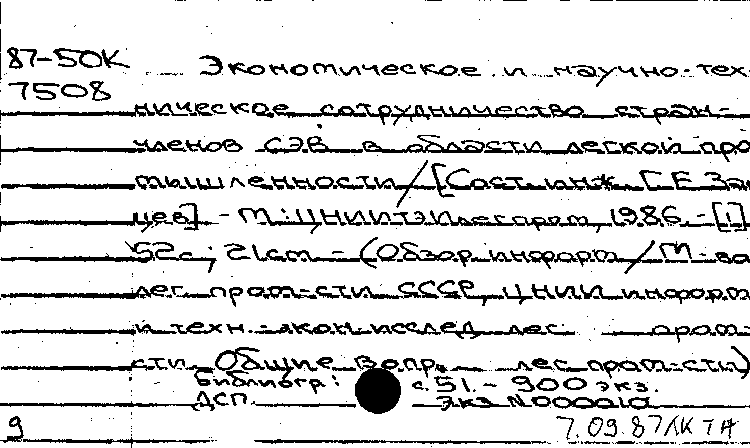 87-50К Экономическое и научно-тех
7508
ническое сотрудничество стран-
членов СЭВ в области легкой про
мышленности / [Сост. инж. Г.Е. За
цев] - М.: ЦНИИТЭИлегпром, 1986. - [1]
52 с.; 21 см - (Обзор. информ / М-во
лег. пром-сти СССР, ЦНИИ информ
и техн.-экон. исслед. лег. пром-
сти. Общие вопр. лег. пром-сти)
Библиогр: с. 51. - 900 экз.
ДСП. Экз N000010
9 7.09.87